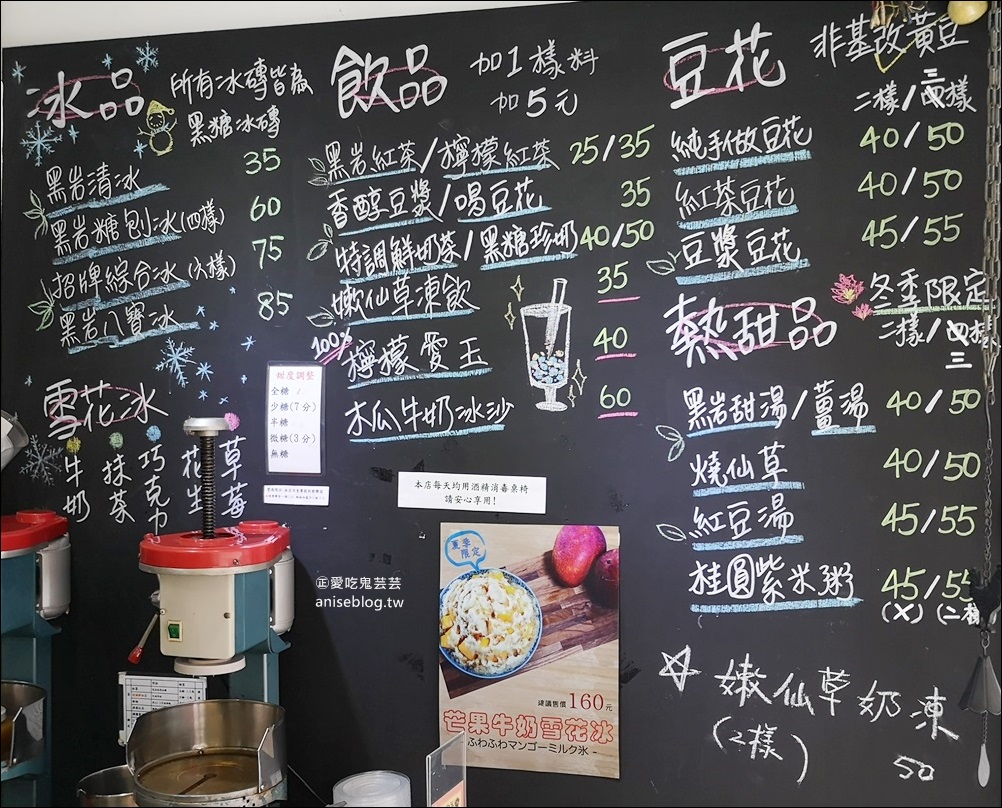 冰品
所有冰磚皆為
黑糖冰磚
黑岩清冰 35
黑岩糖刨冰(四樣) 60
招牌綜合冰(六樣) 75
黑岩八寶冰 85
雪花冰
牛奶
抹茶
巧克力
花生
草莓
飲品
加1樣料
加5元
黑岩紅茶/檸檬紅茶 25/35
香醇豆漿/喝豆花 35
特調鮮奶茶/黑糖珍奶 40/50
嫩仙草凍飲 35
100%
檸檬愛玉 40
木瓜牛奶冰沙 60
甜度調整
全糖 /
少糖(7分)
半糖
微糖(3分)
無糖
本店每天均用酒精消毒桌椅
請安心享用!
豆花
非基改黃豆
二樣/三樣
純手做豆花 40/50
紅茶豆花 40/50
豆漿豆花 45/55
熱甜品
冬季限定
二樣/四樣
三
黑岩甜湯/薑湯 40/50
燒仙草 40/50
紅豆湯 45/55
桂圓紫米粥 45/55
(X) (二樣
嫩仙草奶凍
(2樣)
50
夏季
限定
建議售價160元
芒果牛奶雪花冰
-ふわふわマンゴーミルク氷-
㊣愛吃鬼芸芸
aniseblog.tw